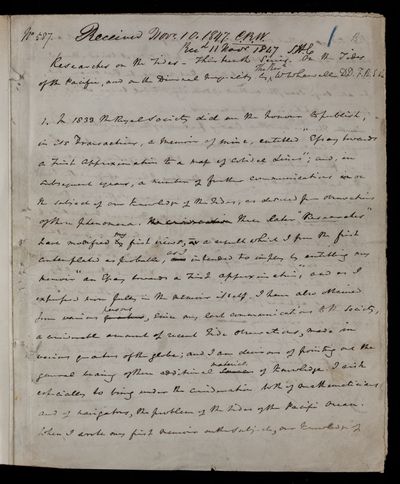 No 587. Received Novr. 10. 1847. C.R.W.
Recd 11 Novr 1847 S.H.C
Researches on the Tides – Thirteenth Series. On the Tides
of the Pacific, and on the Diurnal Inequality by The Revd. W. Whewell DD. F.R.S &c
1. In 1833 the Royal Society did me the honour to publish,
in its Transactions, a Memoir of mine, entitled "Essay towards
a First Approximation to a Map of Cotidal Lines"; and, in
subsequent years, a number of further communications on
the subject of our knowledge of the Tides, as derived from observations
of these phenomena. These later "Researches"
have modified my first views, a result which I from the first
contemplated as probable, as I intended to imply by entitling my
memoir "an Essay towards a First Approximation", and as I
expressed more fully in the memoir itself. I have also obtained
from various persons, since my last communications to the Society,
a considerable amount of recent tide observations, made in
various quarters of the globe; and I am desirous of pointing out the
general bearing of these additional materials of knowledge. I wish
especially to bring under the consideration both of mathematicians
and of navigators, the problem of the tides of the Pacific Ocean.
When I wrote my first memoir on the subject, our knowledge of